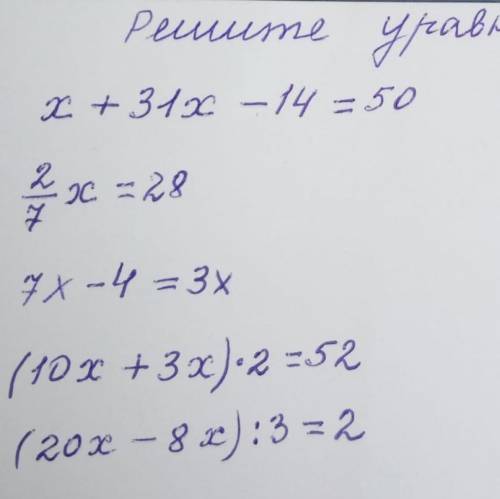 Решите
x + 31x - 14 = 50
2/7 x = 28
7x - 4 = 3x
(10x + 3x) · 2 = 52
(20x - 8x) : 3 = 2